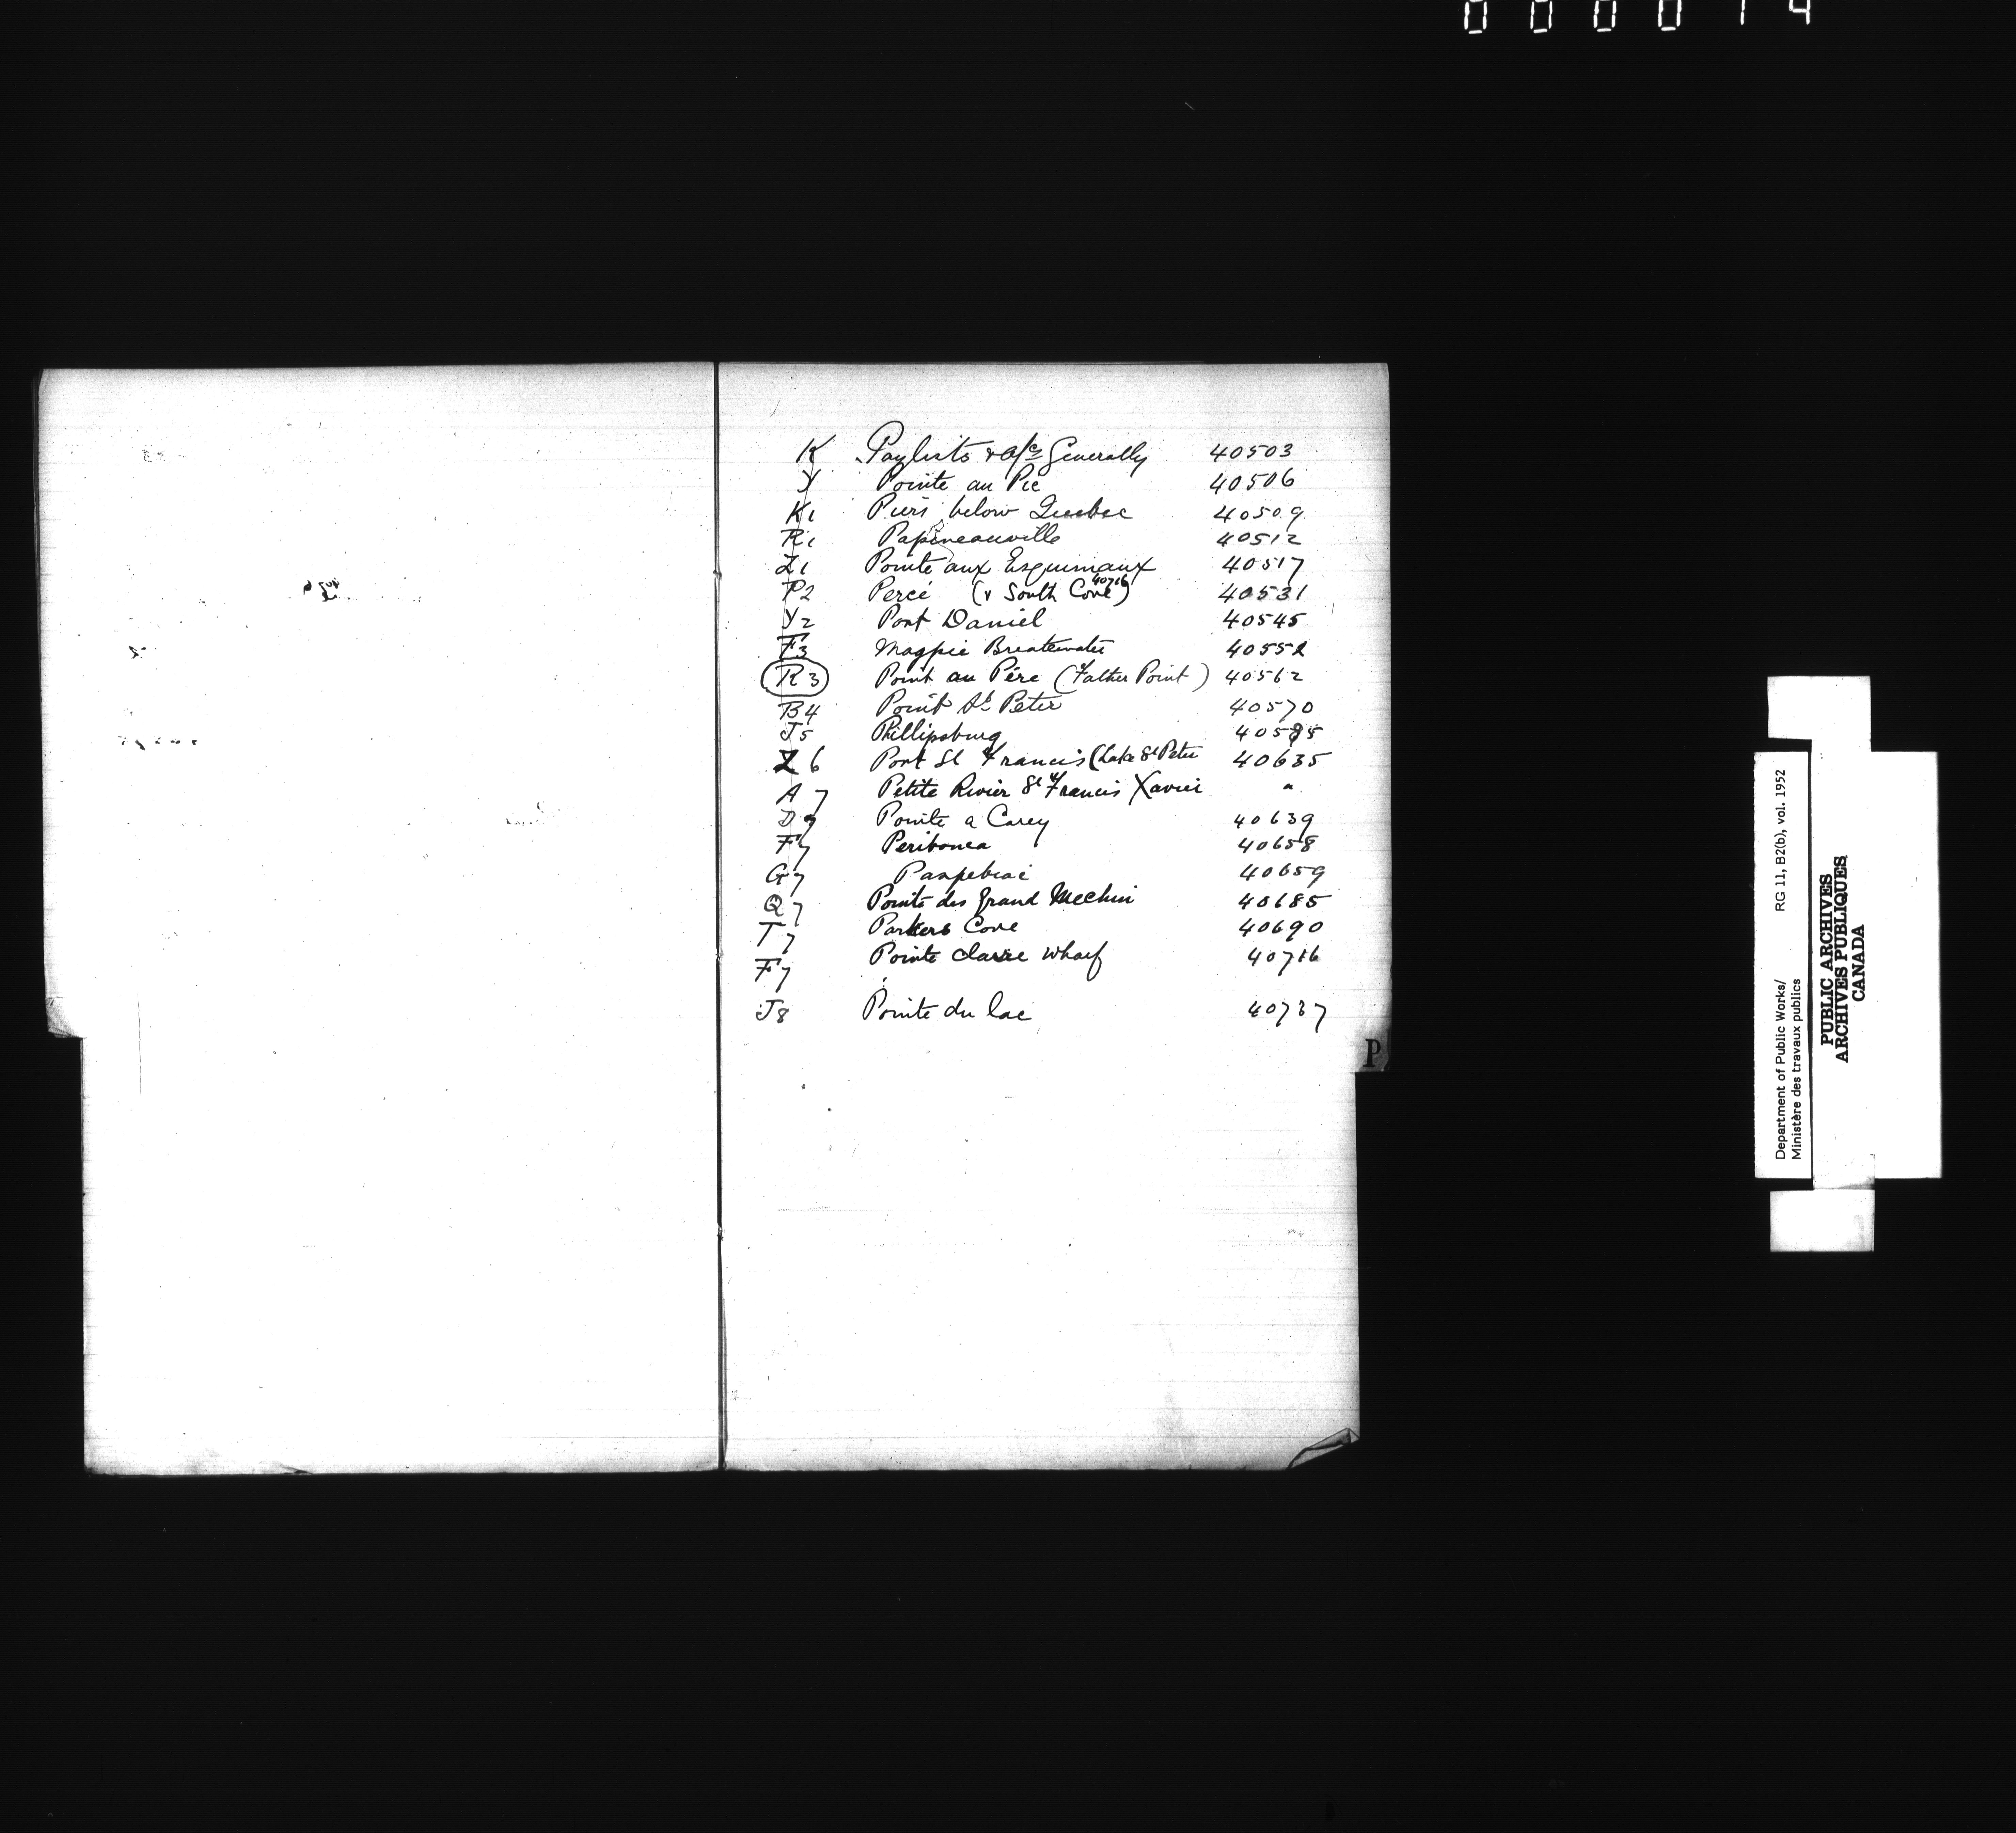 000014
K Paylists & a/cs Generally 40503
Y Pointe au Pic 40506
K1 Piers below Quebec 40509
R1 Papineauville 40512
Z1 Pointe aux Esquimaux 40517
P2 Percé (& South Cove 40716) 40531
Y2 Port Daniel 40545
F3 Magpie Breakwater 40552
R3 Point au Père (Father Point) 40562
B4 Point St Peter 40570
J5 Phillipsburg 40585
Z6 Port St Francis (Lake St Peter 40635
A7 Petite Rivier St Francis Xavier "
D7 Pointe a Carey 40639
F7 Peribonca 40658
G7 Paspebiac 40659
Q7 Pointe des Grand Mechin 40685
T7 Parkers Cove 40690
F7 Pointe Claire Wharf 40716
J8 Pointe du Lac 40737
P
Department of Public Works/ RG 11, B2(b), vol. 1952
Ministère des travaux publics
PUBLIC ARCHIVES
ARCHIVES PUBLIQUES
CANADA